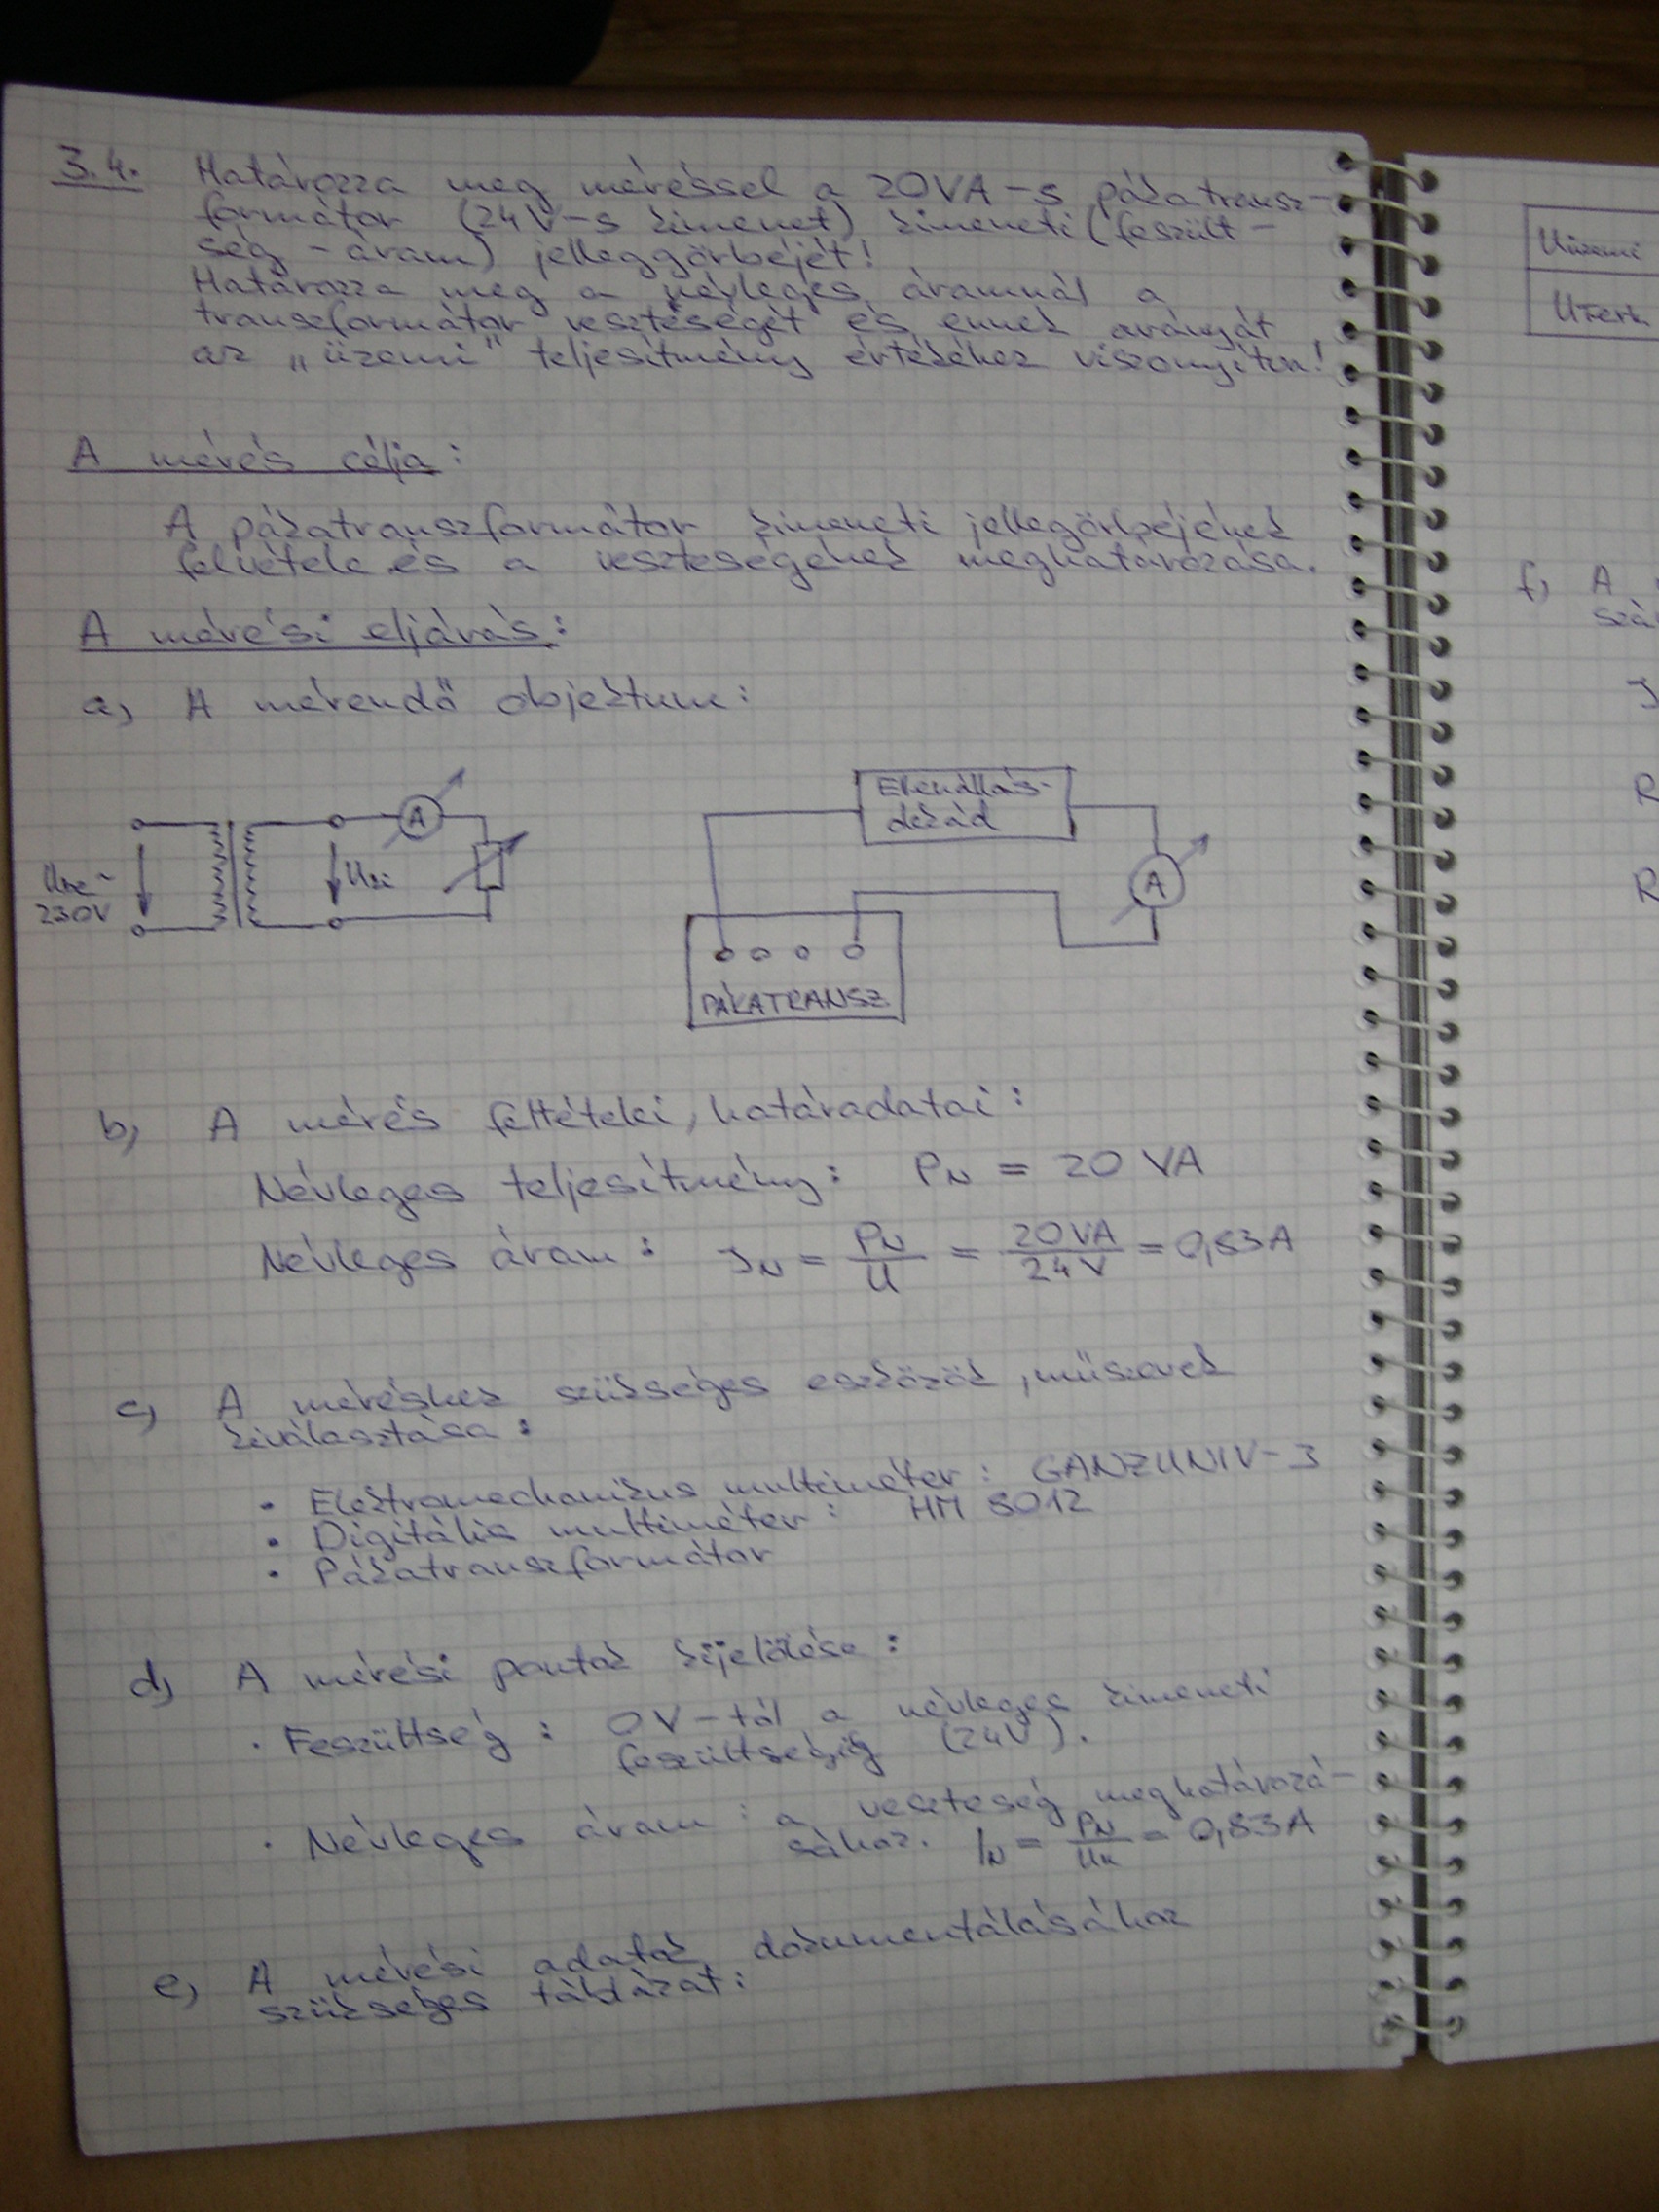 3.4. Határozza meg méréssel a 20VA-s pákatransz-
formátor (24V-s kimenet) kimeneti (feszült-
ség - áram) jelleggörbéjét!
Határozza meg a névleges áramnál a
transzformátor veszteségét és ennek arányát
az „üzemi" teljesítmény értékéhez viszonyítva!
A mérés célja:
A pákatranszformátor kimeneti jellegörbéjének
felvétele és a veszteségének meghatározása.
A mérési eljárás:
a, A mérendő objektum:
Ube~
230V
Uki
A
Ellenállás-
dekád
A
PÁKATRANSZ
b, A mérés feltételei, határadatai:
Névleges teljesítmény: PN = 20 VA
Névleges áram: IN = PN/U = 20VA/24V = 0,83A
c, A méréshez szükséges eszközök, műszerek
kiválasztása:
• Elektromechanikus multiméter: GANZUNIV-3
• Digitális multiméter: HM 8012
• Pákatranszformátor
d, A mérési pontok kijelölése:
• Feszültség: 0V-tól a névleges kimeneti
feszültségig (24V).
• Névleges áram: a veszteség meghatározá-
sához. IN = PN/UN = 0,83A
e, A mérési adatok dokumentálásához
szükséges táblázat:
Uüzemi
Uterh.
f, A
szá
I
R
R